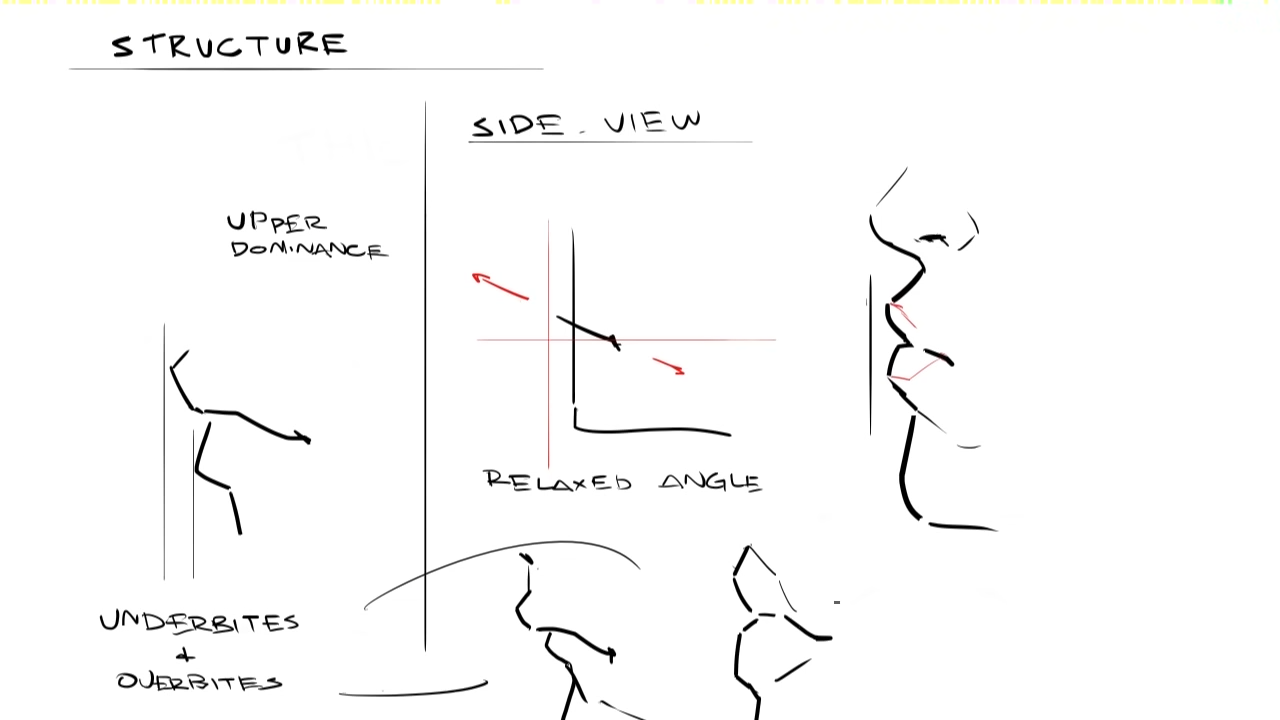 STRUCTURE
SIDE. VIEW
UPPER
DOMINANCE
RELAXED ANGLE
UNDERBITES
+
OVERBITES